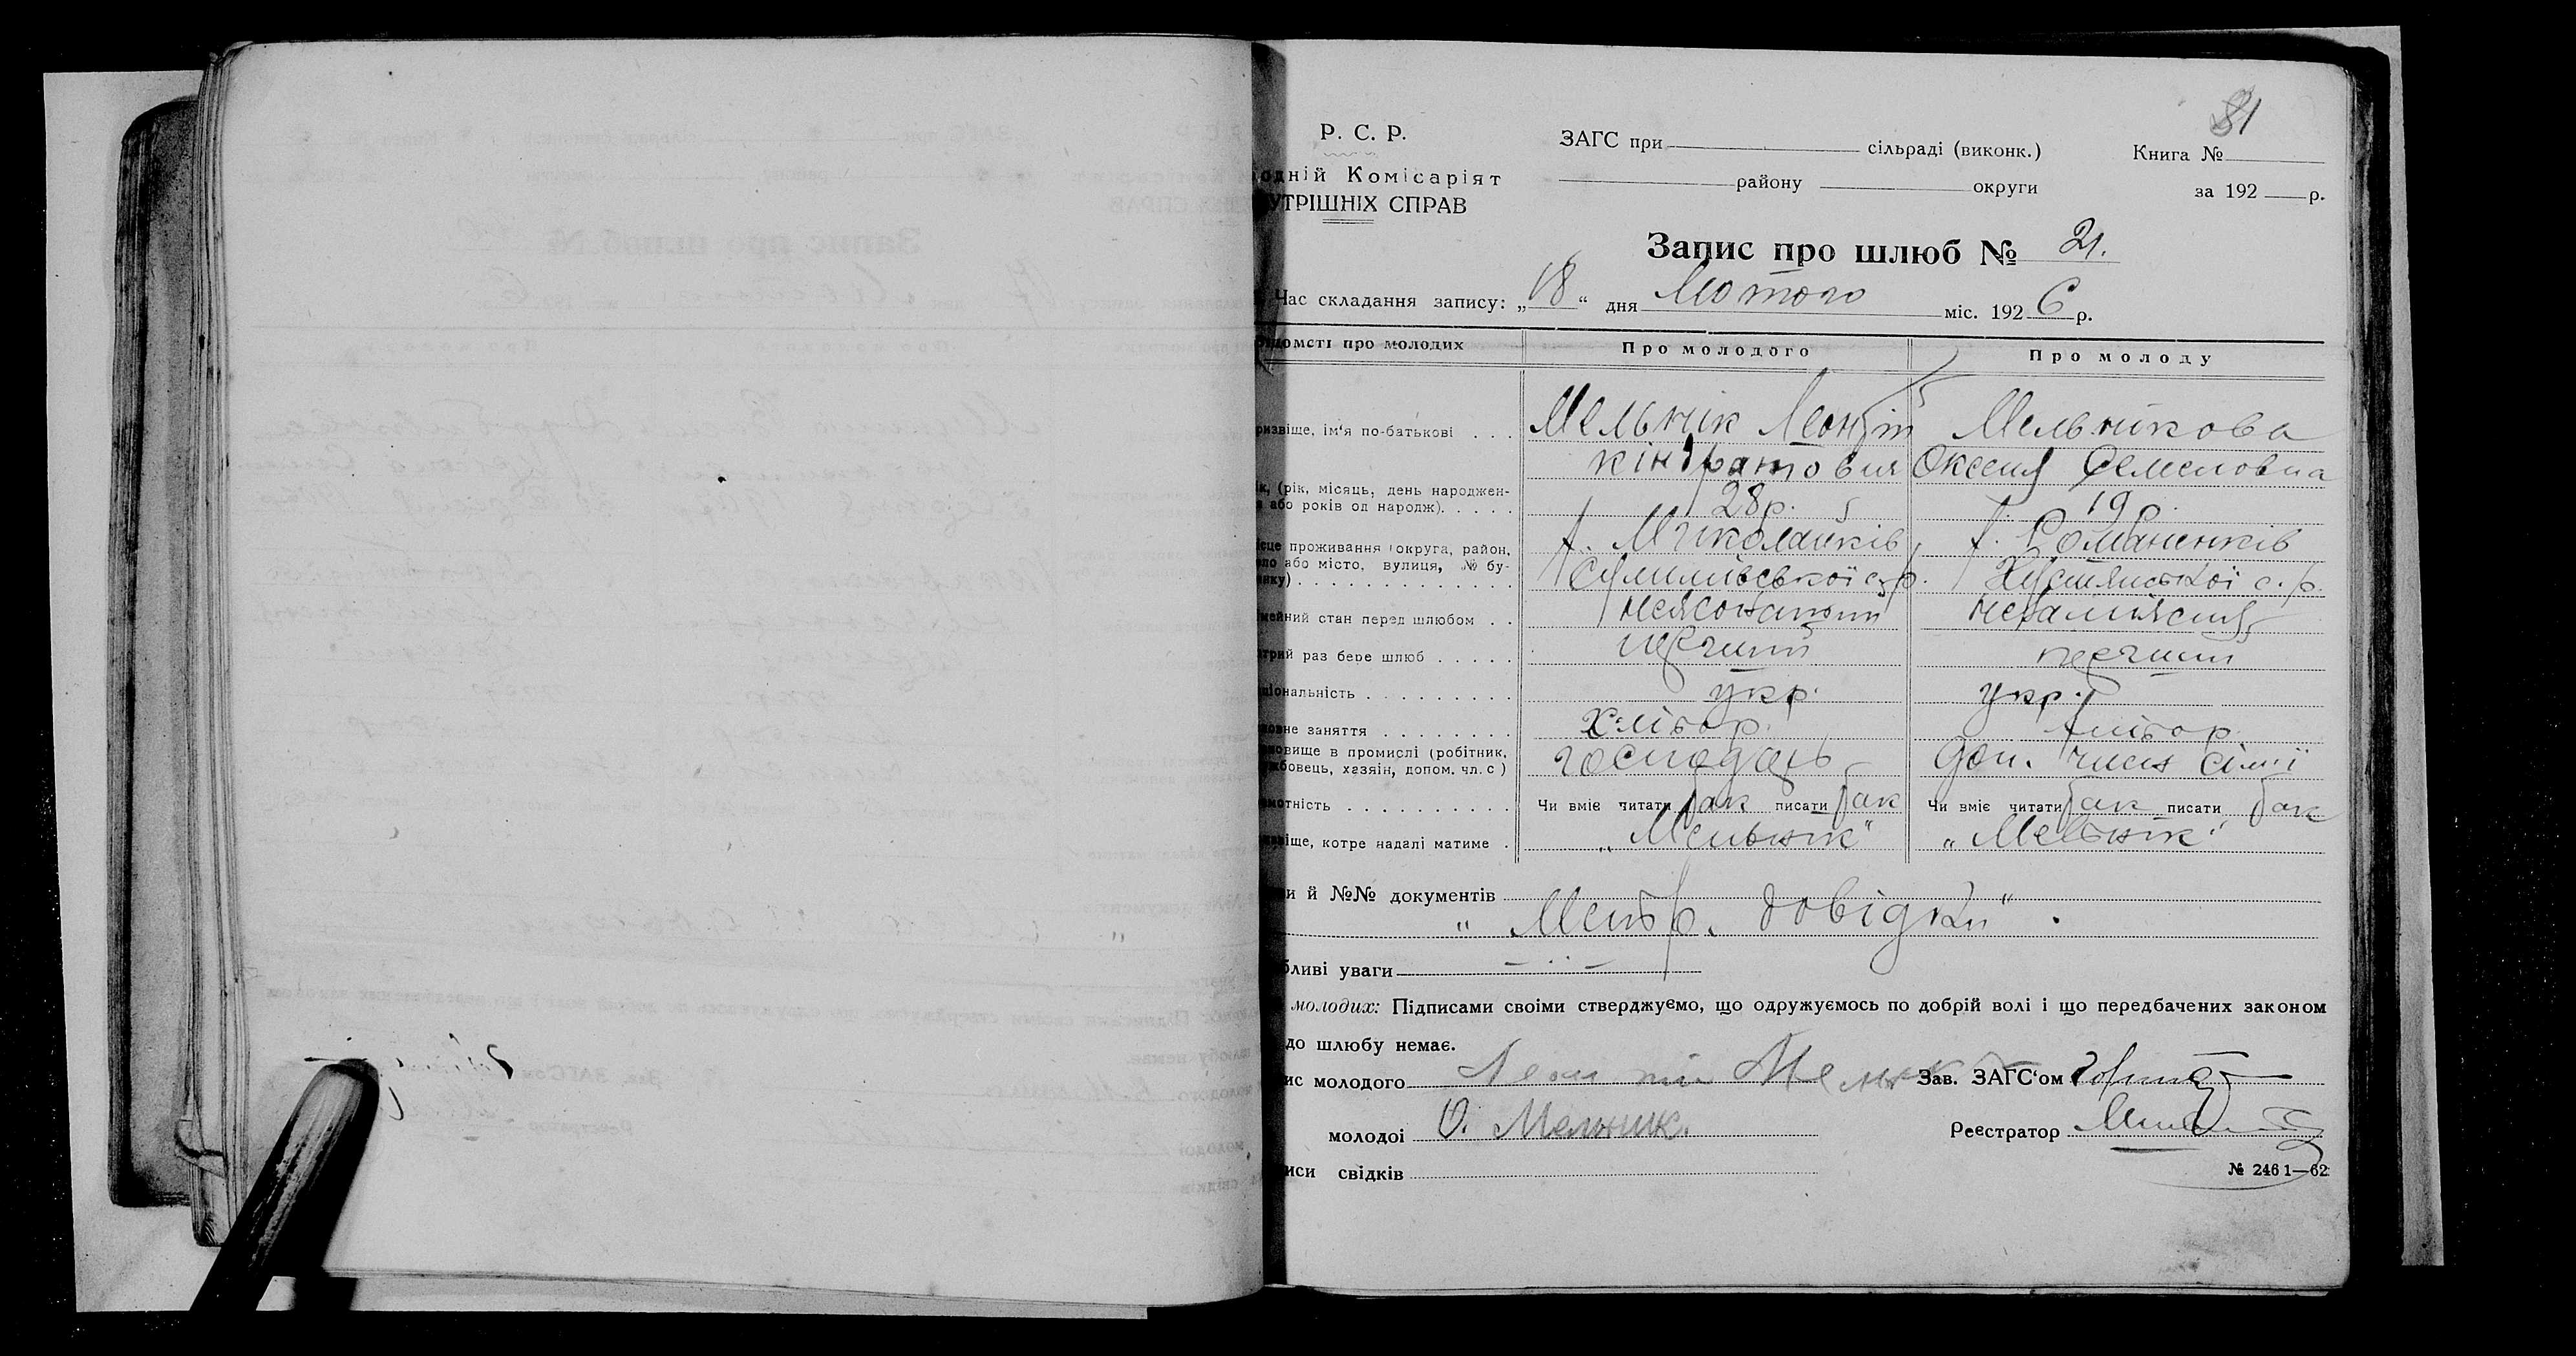 81
Р. С. Р.
ЗАГС при сільраді (виконк.)
Книга №
одній Комісаріят
району округи
за 192 р.
УТРІШНІХ СПРАВ
Запис про шлюб № 21.
Час складання запису: „18“ дня Лютого міс. 1926 р.
ідомсті про молодих
Про молодого
Про молоду
ризвіще, ім'я по-батькові . . .
Мельнік Леонтій
Мельникова
Кіндратович
Оксенія Семеновна
ік, (рік, місяць, день народжен-
або років од народж). . . . .
28 р.
19 р.
ісце проживання (округа, район,
ло або місто, вулиця, № бу-
инку) . . . . . . . . . . . . .
х. Миколайків
х. Романенків
с. р.
Хустянської с. р.
мейний стан перед шлюбом . .
нежонатий
незаміжня
отрий раз бере шлюб . . . . .
перший
перший
ціональність . . . . . . . . .
укр.
укр.
овне заняття . . . . . . . .
хлібор.
хлібор.
новище в промислі (робітник,
жбовець, хазяін, допом. чл. с)
господарь
доп. член сімї
мотність . . . . . . . . . .
Чи вміє читати так писати так
Чи вміє читати так писати так
ізвіще, котре надалі матиме .
„Мельнік“
„Мельнік“
и й №№ документів
„Метр. довідки“.
бливі уваги
молодих: Підписами своіми стверджуємо, що одружуємось по добрій волі і що передбачених законом
до шлюбу немає.
ис молодого Леонтій Мельник
Зав. ЗАГС'ом
молодоі О. Мельник.
Реєстратор
иси свідків
№ 2461—62